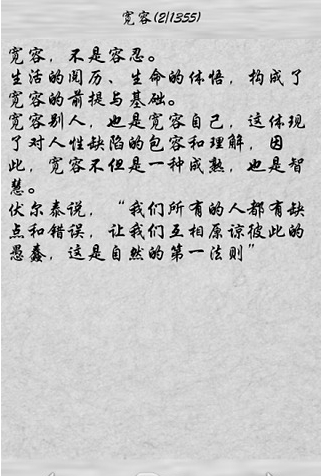 宽容(2/1355)
宽容，不是容忍。
生活的阅历、生命的体悟，构成了
宽容的前提与基础。
宽容别人，也是宽容自己，这体现
了对人性缺陷的包容和理解，因
此，宽容不但是一种成熟，也是智
慧。
伏尔泰说，“我们所有的人都有缺
点和错误，让我们互相原谅彼此的
愚蠢，这是自然的第一法则”